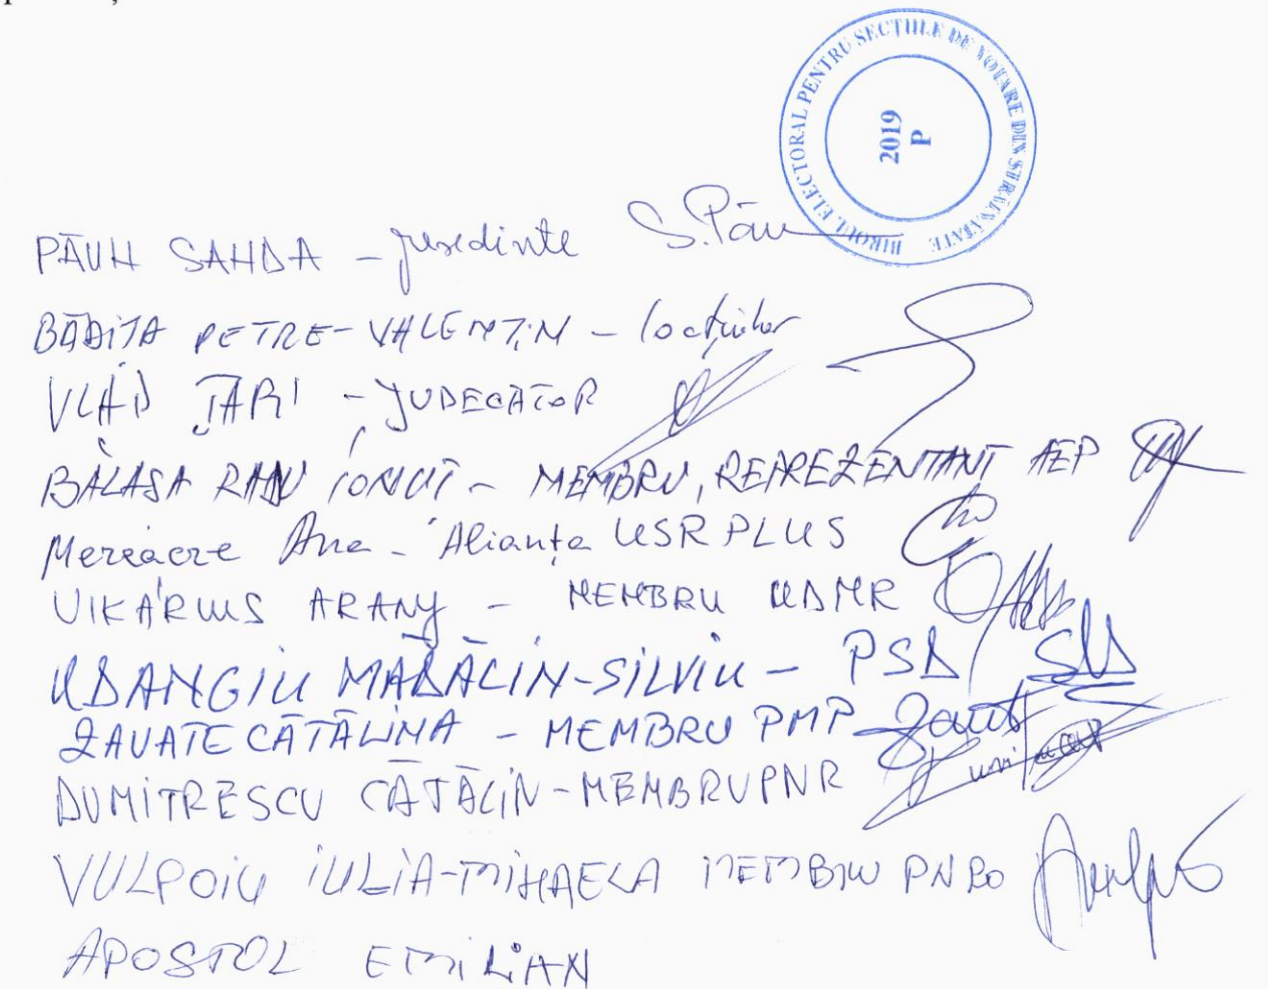 BIROUL ELECTORAL PENTRU SECȚIILE DE VOTARE DIN STRĂINĂTATE
2019
P
PĂUN SANDA – președinte S. Păun
BĂDIȚA PETRE-VALENTIN – locțiitor
VLAD ȚARI – JUDECĂTOR
BĂLAȘA RADU IONUȚ – MEMBRU, REPREZENTANT AEP
Mereacre Ana – Alianța USR PLUS
VIKÁRIUS ARANY – MEMBRU UDMR
UDANGIU MĂDĂLIN-SILVIU – PSD
ZAVATE CĂTĂLINA – MEMBRU PMP
DUMITRESCU CĂTĂLIN – MEMBRU PNR
VULPOIU IULIA-MIHAELA MEMBRU PNRo
APOSTOL EMILIAN